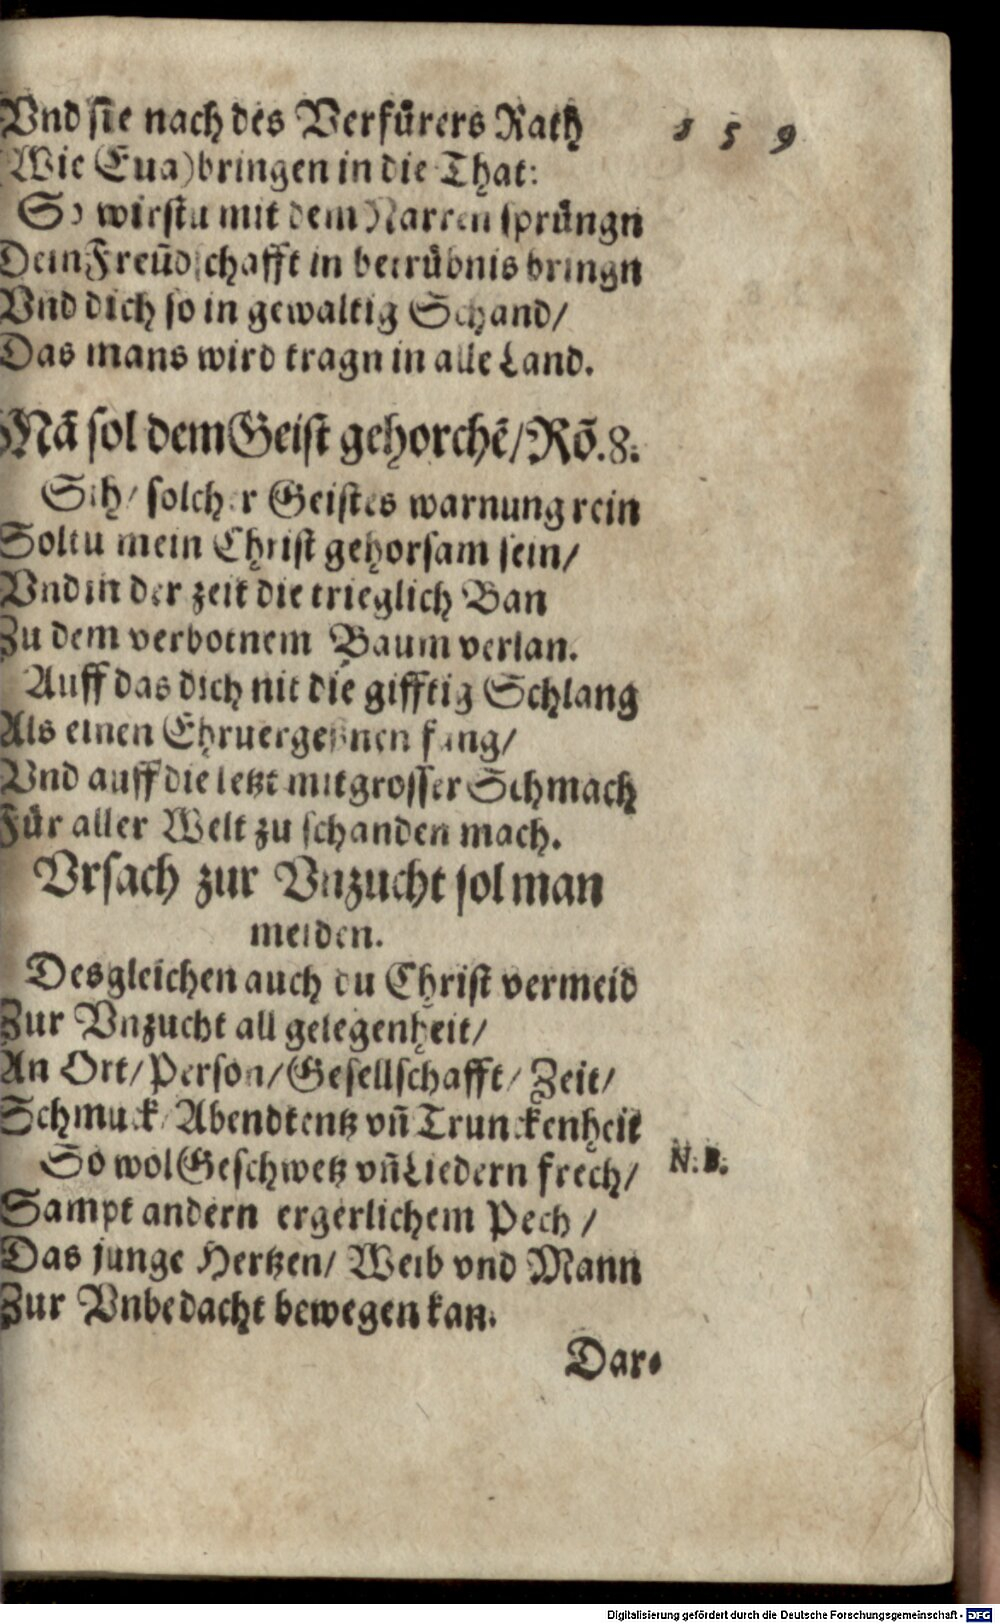 Vnd sie nach des Verfürers Rath
159
(Wie Eua) bringen in die That:
So wirstu mit dem Narren sprüngn
Dein Freūdschafft in betrübnis bringn
Vnd dich so in gewaltig Schand/
Das mans wird tragn in alle Land.
Mā sol dem Geist gehorchē/ Rō. 8.
Sih/ solcher Geistes warnung rein
Soltu mein Christ gehorsam sein/
Vnd in der zeit die trieglich Ban
Zu dem verbotnem Baum verlan.
Auff das dich nit die gifftig Schlang
Als einen Ehruergeßnen fang/
Vnd auff die letzt mit grosser Schmach
Für aller Welt zu schanden mach.
Vrsach zur Vnzucht sol man
meiden.
Desgleichen auch du Christ vermeid
Zur Vnzucht all gelegenheit/
An Ort/ Person/ Gesellschafft/ Zeit/
Schmuck/ Abendtentz vn̄ Trunckenheit
So wol Geschwetz vn̄ Liedern frech/
N. B.
Sampt andern ergerlichem Pech/
Das junge Hertzen/ Weib vnd Mann
Zur Vnbedacht bewegen kan.
Dar-
Digitalisierung gefördert durch die Deutsche Forschungsgemeinschaft - DFG